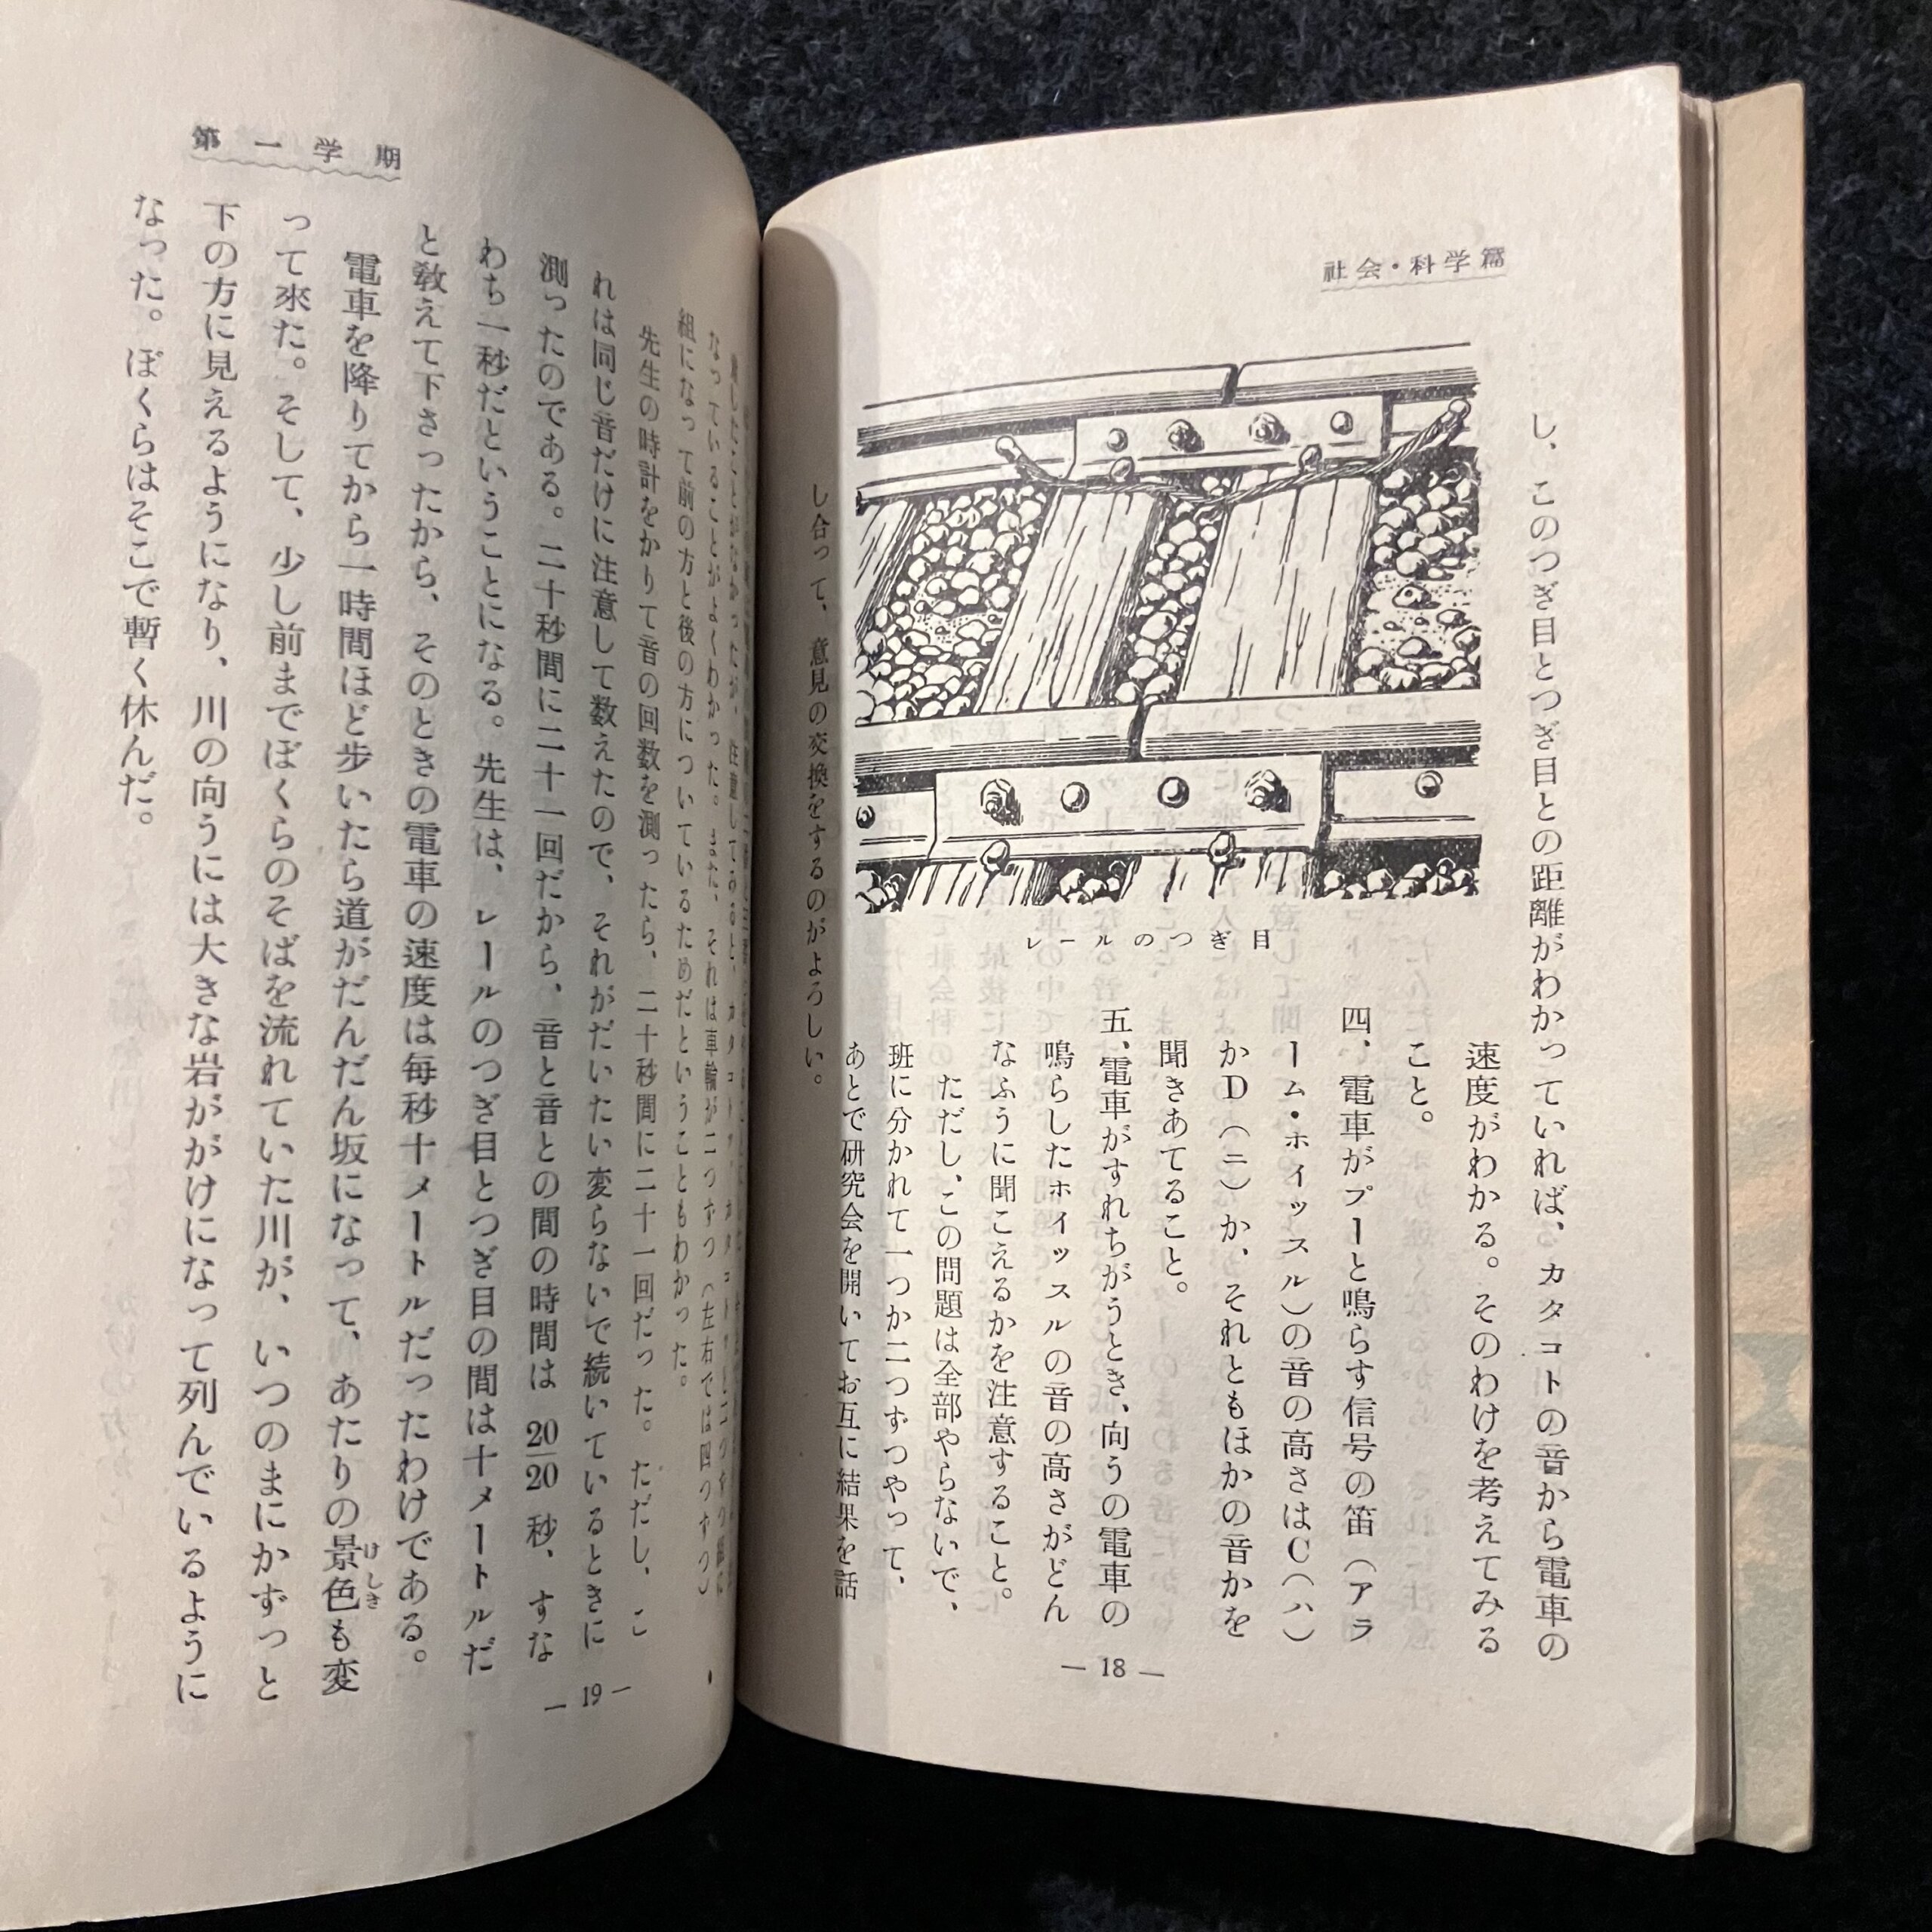 社会・科学篇
し、このつぎ目とつぎ目との距離がわかっていれば、カタコトの音から電車の
速度がわかる。そのわけを考えてみる
こと。
四、電車がプーと鳴らす信号の笛（アラ
ーム・ホイッスル）の音の高さはC（ハ）
かD（ニ）か、それともほかの音かを
聞きあてること。
五、電車がすれちがうとき、向うの電車の
鳴らしたホイッスルの音の高さがどん
なふうに聞こえるかを注意すること。
ただし、この問題は全部やらないで、
班に分かれて一つか二つずつやって、
あとで研究会を開いてお互に結果を話
し合って、意見の交換をするのがよろしい。
レールのつぎ目
— 18 —
第一学期
なっていることがよくわかった。また、それは車輪が二つずつ（左右では四つずつ）
組になって前の方と後の方についているためだということもわかった。
先生の時計をかりて音の回数を測ったら、二十秒間に二十一回だった。ただし、こ
れは同じ音だけに注意して数えたので、それがだいたい変らないで続いているときに
測ったのである。二十秒間に二十一回だから、音と音との間の時間は 20/20 秒、すな
わち一秒だということになる。先生は、レールのつぎ目とつぎ目の間は十メートルだ
と敎えて下さったから、そのときの電車の速度は每秒十メートルだったわけである。
電車を降りてから一時間ほど歩いたら道がだんだん坂になって、あたりの景色も変
けしき
って來た。そして、少し前までぼくらのそばを流れていた川が、いつのまにかずっと
下の方に見えるようになり、川の向うには大きな岩ががけになって列んでいるように
なった。ぼくらはそこで暫く休んだ。
— 19 —